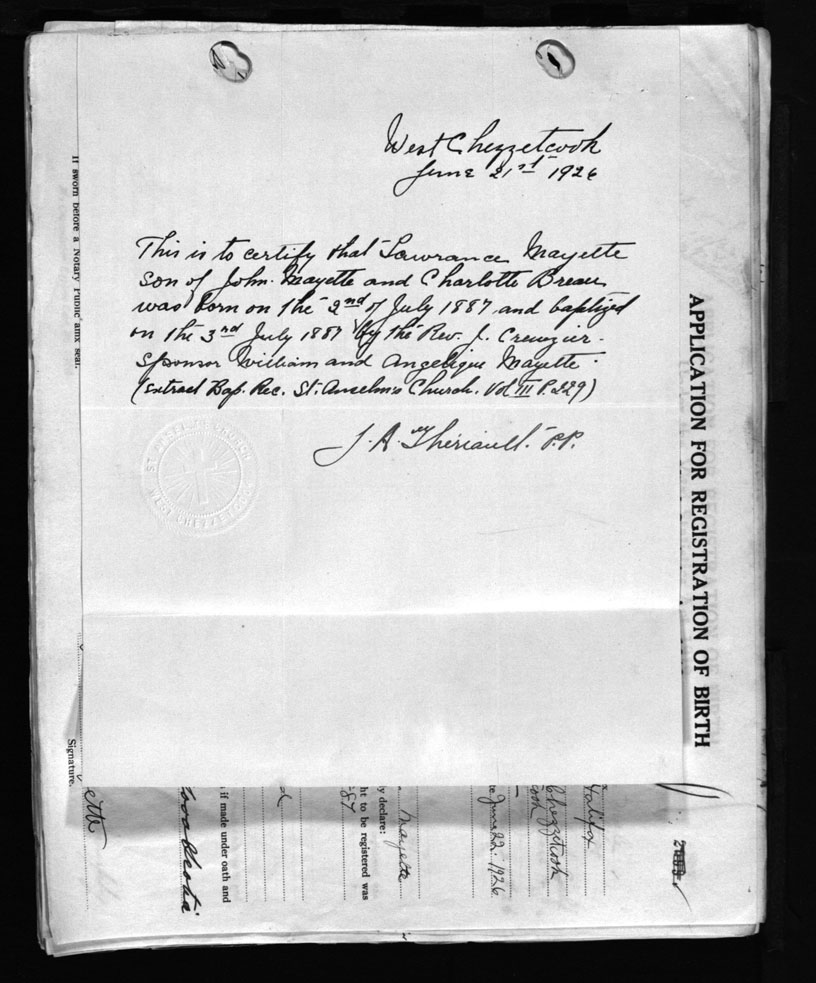 West Chezzetcook
June 21st 1926
This is to certify that Lawrance Mayette
son of John Mayette and Charlotte Breau
was born on the 2nd of July 1887 and baptized
on the 3rd July 1887 by the Rev. J.
Sponsor William and Angelique Mayette
(Extract Bap. Rec. St. Anselm's Church. Vol III P. 229)
J. A. Theriault. P.P.
ST. ANSELM'S CHURCH
WEST CHEZZETCOOK
APPLICATION FOR REGISTRATION OF BIRTH
Halifax
Chezzetcook
June 22. 1926
Mayette
y declare:
ht to be registered was
87
if made under oath and
Scotia
ette
Signature.
If sworn before a Notary Public affix seal.